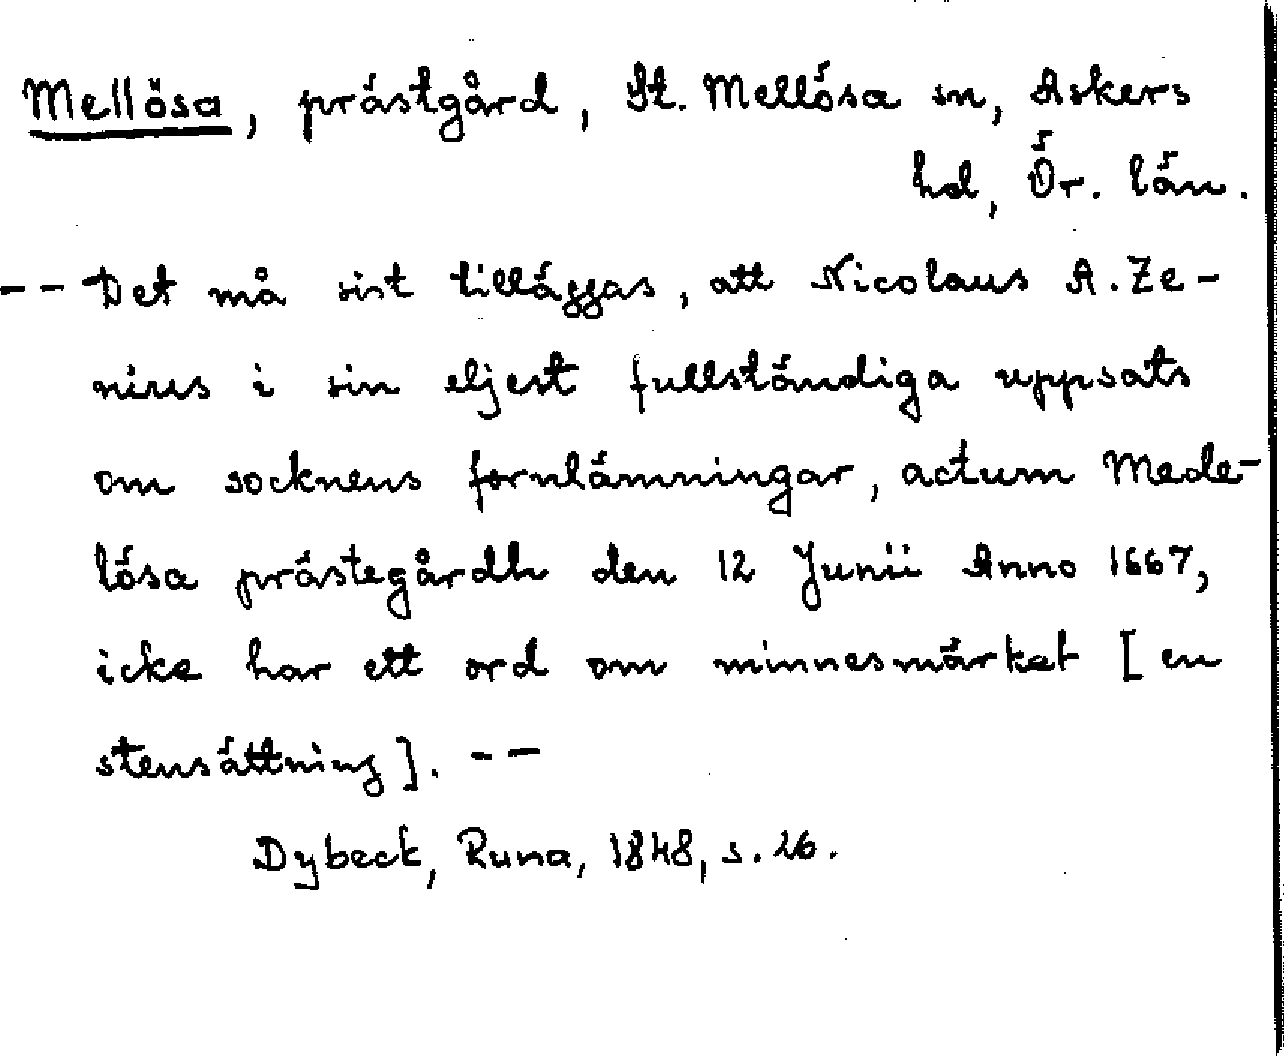 Mellösa, prästgård, St. Mellösa sn, Askers
hd, Ör. län.
-- Det må sist tilläggas, att Nicolaus A. Ze-
nius i sin eljest fullständiga uppsats
om socknens fornlämningar, actum Mede-
lösa prästegårdh den 12 Junii Anno 1667,
icke har ett ord om minnesmärket [en
stensättning]. --
Dybeck, Runa, 1848, s. 26.